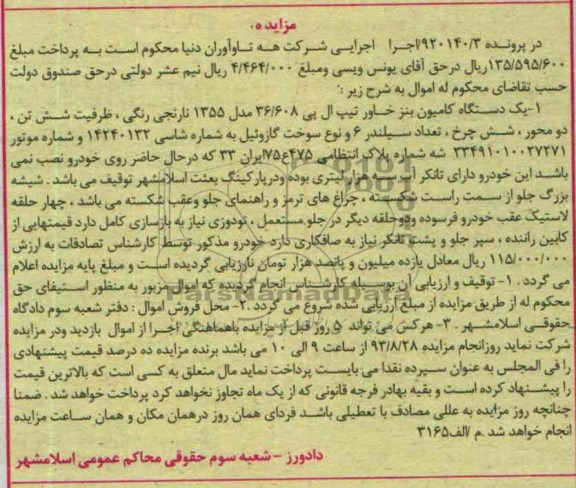 مزایده.
در پرونده ۹۲۰۱۴۰/۳/اجرا اجرایی شرکت هه تاوآوران دنیا محکوم است به پرداخت مبلغ
۱۳۵/۵۹۵/۶۰۰ریال درحق آقای یونس ویسی ومبلغ ۴/۴۶۴/۰۰۰ ریال نیم عشر دولتی درحق صندوق دولت
حسب تقاضای محکوم له اموال به شرح زیر :
۱-یک دستگاه کامیون بنز خاور تیپ ال پی ۳۶/۶۰۸ مدل ۱۳۵۵ نارنجی رنگی ، ظرفیت شش تن ،
دو محور ، شش چرخ ، تعداد سیلندر ۶ و نوع سوخت گازوئیل به شماره شاسی ۱۴۲۴۰۱۳۲ و شماره موتور
۳۳۴۹۱۰۱۰۰۲۷۲۷۱ شه شماره پلاک انتظامی ۴۷۵ع۷۵ایران ۳۳ که درحال حاضر روی خودرو نصب نمی
باشد این خودرو دارای تانکر آب سه هزار لیتری بوده ودرپارکینگ بعثت اسلامشهر توقیف می باشد . شیشه
بزرگ جلو از سمت راست شکسته ، چراغ های ترمز و راهنمای جلو وعقب شکسته می باشد ، چهار حلقه
لاستیک عقب خودرو فرسوده ودوحلقه دیگر در جلو مستعمل ، تودوزی نیاز به بازسازی کامل دارد قیمتهایی از
کابین راننده ، سپر جلو و پشت تانکر نیاز به صافکاری دارد خودرو مذکور توسط کارشناس تصادفات به ارزش
۱۱۵/۰۰۰/۰۰۰ ریال معادل یازده میلیون و پانصد هزار تومان نارزیابی گردیده است و مبلغ پایه مزایده اعلام
می گردد . ۱- توقیف و ارزیابی آن بوسیله کارشناس انجام گردیده که اموال مزبور به منظور استیفای حق
محکوم له از طریق مزایده از مبلغ ارزیابی شده شروع می گردد .۲- محل فروش اموال : دفتر شعبه سوم دادگاه
حقوقی اسلامشهر . ۳- هرکس می تواند ۵ روز قبل از مزایده باهماهنگی اجرا از اموال بازدید ودر مزایده
شرکت نماید روزانجام مزایده ۹۳/۸/۲۸ از ساعت ۹ الی ۱۰ می باشد برنده مزایده ده درصد قیمت پیشنهادی
را فی المجلس به عنوان سپرده نقدا می بایست پرداخت نماید مال متعلق به کسی است که بالاترین قیمت
را پیشنهاد کرده است و بقیه بهادر فرجه قانونی که از یک ماه تجاوز نخواهد کرد پرداخت خواهد شد . ضمنا
چنانچه روز مزایده به عللی مصادف با تعطیلی باشد فردای همان روز درهمان مکان و همان ساعت مزایده
انجام خواهد شد .م /الف۳۱۶۵
دادورز -شعبه سوم حقوقی محاکم عمومی اسلامشهر
ParsNamadData